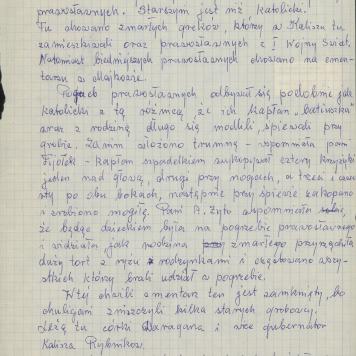 prawosławnych. Starszym jest niż katolicki.
Tu chowano zmarłych greków, którzy w Kaliszu tu
zamieszkiwali oraz prawosławnych z I Wojny Świat.
Natomiast biedniejszych prawosławnych chowano na cmen-
tarzu w Majkowie.
Pogrzeb prawosławnych odbywał się podobnie jak
katolicki z tą różnicą, że ich kapłan "batiuszka"
wraz z rodziną długo się modlili, śpiewali przy
grobie. Zanim włożono trumnę - wspomina pani
Fijołek - kapłan szpadelkiem wykopywał cztery krzyżyki
jeden nad głową, drugi przy nogach, a trzeci i czwar
ty po obu bokach, następnie przy śpiewie zakopano
i zrobiono mogiłę. Pani A. Żyto wspomniała
że będąc dzieckiem była na pogrzebie prawosławnego
i widziała jak rodzina zmarłego przyniosła
duży tort z ryżu z rodzynkami i częstowano wszy-
stkich którzy brali udział w pogrzebie.
W tej chwili cmentarz ten jest zamknięty, bo
chuligani zniszczyli kilka starych grobowcy.
Leżą tu córki Daragana i vice gubernator
Kalisza Rybnikow.